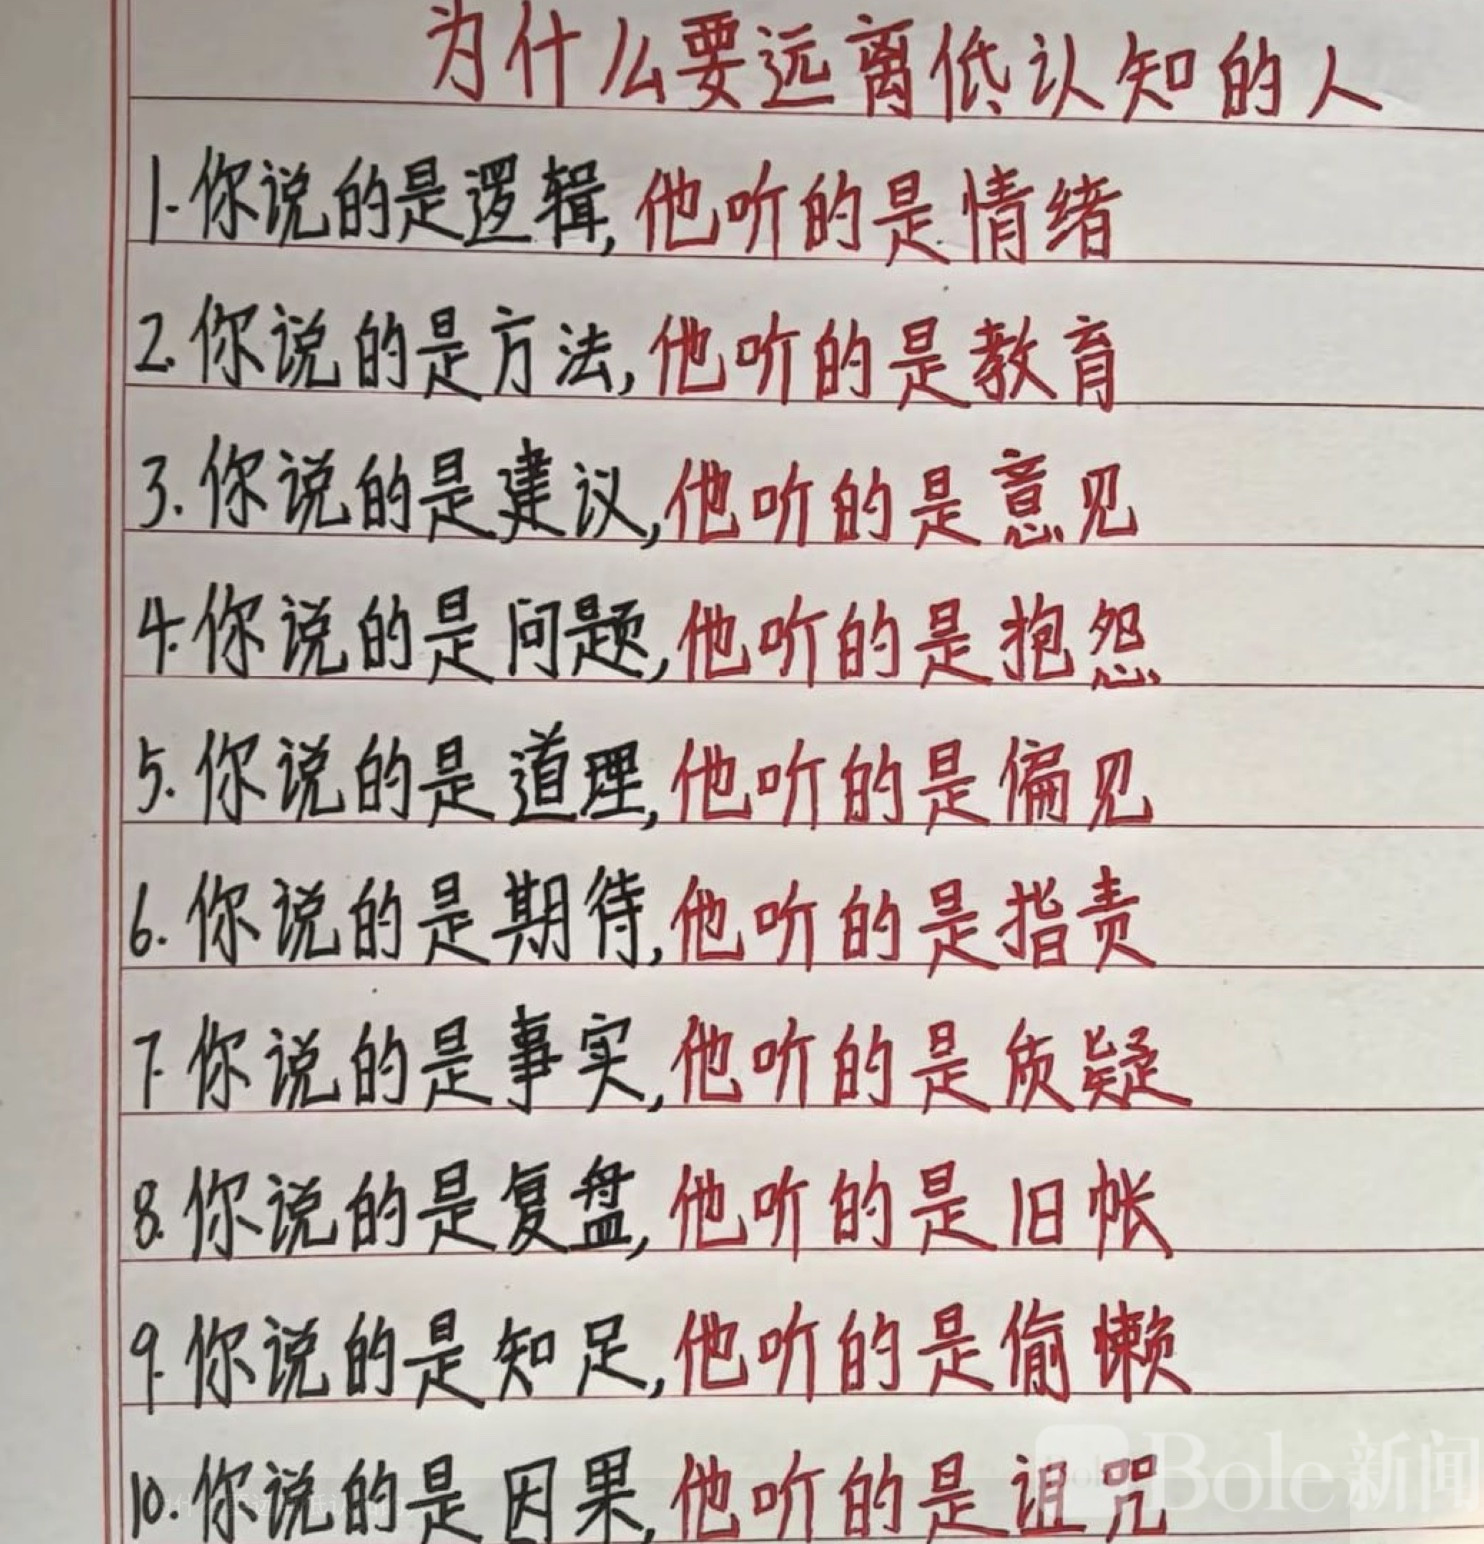 为什么要远离低认知的人
1.你说的是逻辑,他听的是情绪
2.你说的是方法,他听的是教育
3.你说的是建议,他听的是意见
4.你说的是问题,他听的是抱怨
5.你说的是道理,他听的是偏见
6.你说的是期待,他听的是指责
7.你说的是事实,他听的是质疑
8.你说的是复盘,他听的是旧帐
9.你说的是知足,他听的是偷懒
10.你说的是因果,他听的是诅咒
Bole新闻